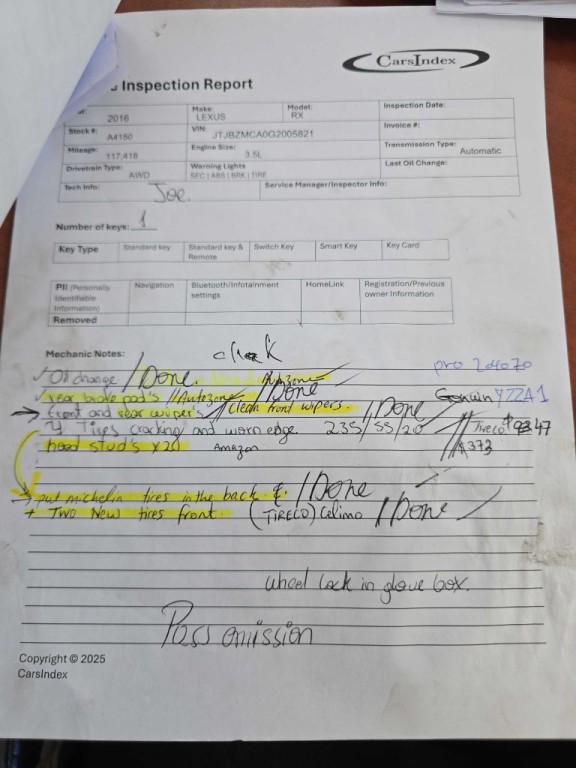 CarsIndex
Inspection Report
2016
Make: LEXUS
Model: RX
Inspection Date:
Stock #: A4150
VIN: JTJBZMCA0G2005821
Invoice #:
Mileage: 117,418
Engine Size: 3.5L
Transmission Type: Automatic
Drivetrain Type: AWD
Warning Lights
SEC | ABS | BRK | TIRE
Last Oil Change:
Tech Info: Joe
Service Manager/Inspector Info:
Number of keys: 1
Key Type
Standard key
Standard key & Remote
Switch Key
Smart Key
Key Card
PII (Personally Identifiable Information) Removed
Navigation
Bluetooth/Infotainment settings
HomeLink
Registration/Previous owner Information
Mechanic Notes:
check
✓ Oil change / Done. Autozone pro 204070
✓ rear brake pad's // Autozone / Done YZZA1
→ front and rear wiper's // Clean front wipers. / Done
4 Tires cracking and worn edge. 235/55/20 Tireco
stud's x20 Amazon $373
→ put michelin tires in the back &. / Done
+ Two New tires front. (TIRECO) / Done
wheel lock in glove box.
Pass omission
Copyright © 2025
CarsIndex